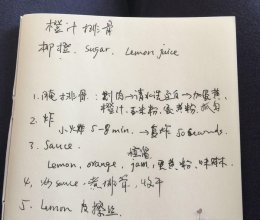 橙汁排骨
柳橙. Sugar. Lemon juice
1. 腌排骨:剁肉→清和洗过后→加蛋黄,
橙汁.玉米粉.蛋黄粉.抓匀
2. 炸
小火炸 5-8 min. → 高炸 50 seconds.
3. Sauce
Lemon, orange, jam. 蛋黄粉. 味醂
4. 炒 sauce. 煮排骨. 收汁
5. Lemon 皮